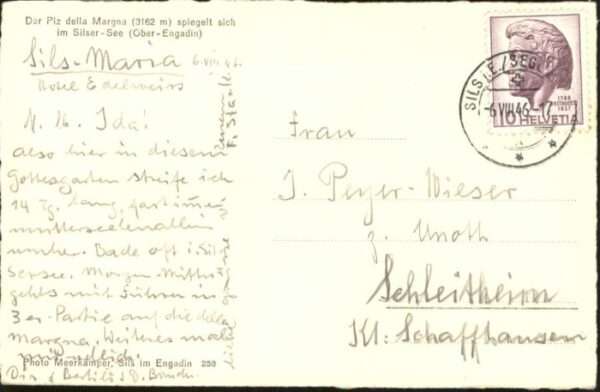 Der Piz della Margna (3162 m) spiegelt sich
im Silser-See (Ober-Engadin)
Sils-Maria 6.VIII.46.
Hotel Edelweiss
Ida!
also hier in diesem
Gottesgarten streife ich
14 Tg. lang, fast immer
mutterseelenallein
umher. Bade oft i. Sil-
sersee. Morgen Mittwoch
gehts mit Führer in
3er-Partie auf die della
Margna. Weiteres mal
mündlich!
Photo Meerkämper, Sils im Engadin 250
HELVETIA
10
SILS i.E./SEGL
-6.VIII.46-17
Frau
J. Peyer-Wieser
z. Unoth
Schleitheim
Kt. Schaffhausen